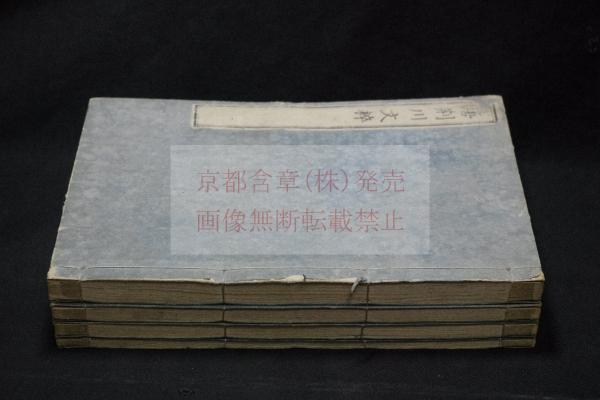 荊川文粹
京都含章(株)発売
画像無断転載禁止